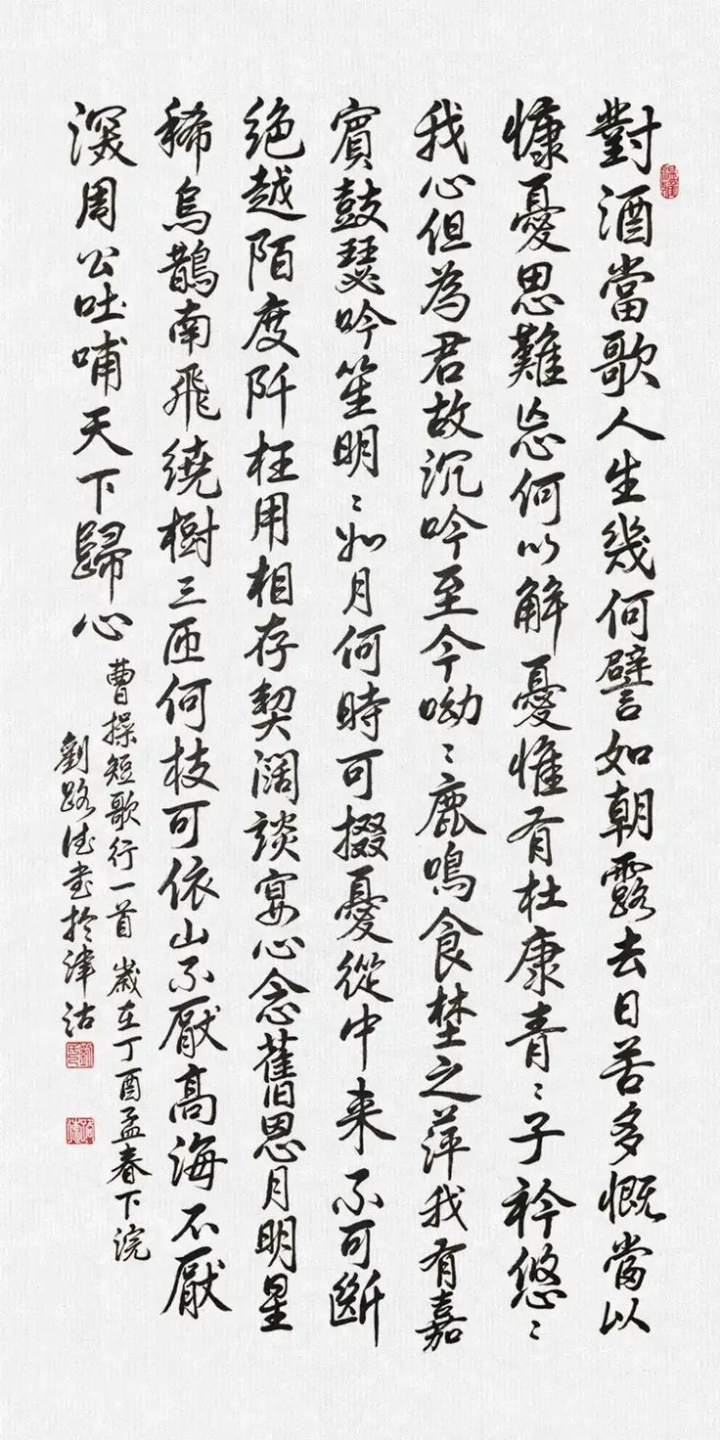 對酒當歌人生幾何譬如朝露去日苦多慨當以
慷憂思難忘何以解憂惟有杜康青〻子衿悠〻
我心但為君故沉吟至今呦〻鹿鳴食埜之萍我有嘉
賓鼓瑟吟笙明〻如月何時可掇憂從中来不可斷
绝越陌度阡枉用相存契阔談宴心念舊恩月明星
稀烏鵲南飛繞樹三匝何枝可依山不厭高海不厭
深周公吐哺天下歸心
曹操短歌行一首 歲在丁酉孟春下浣
劉路德书於津沽